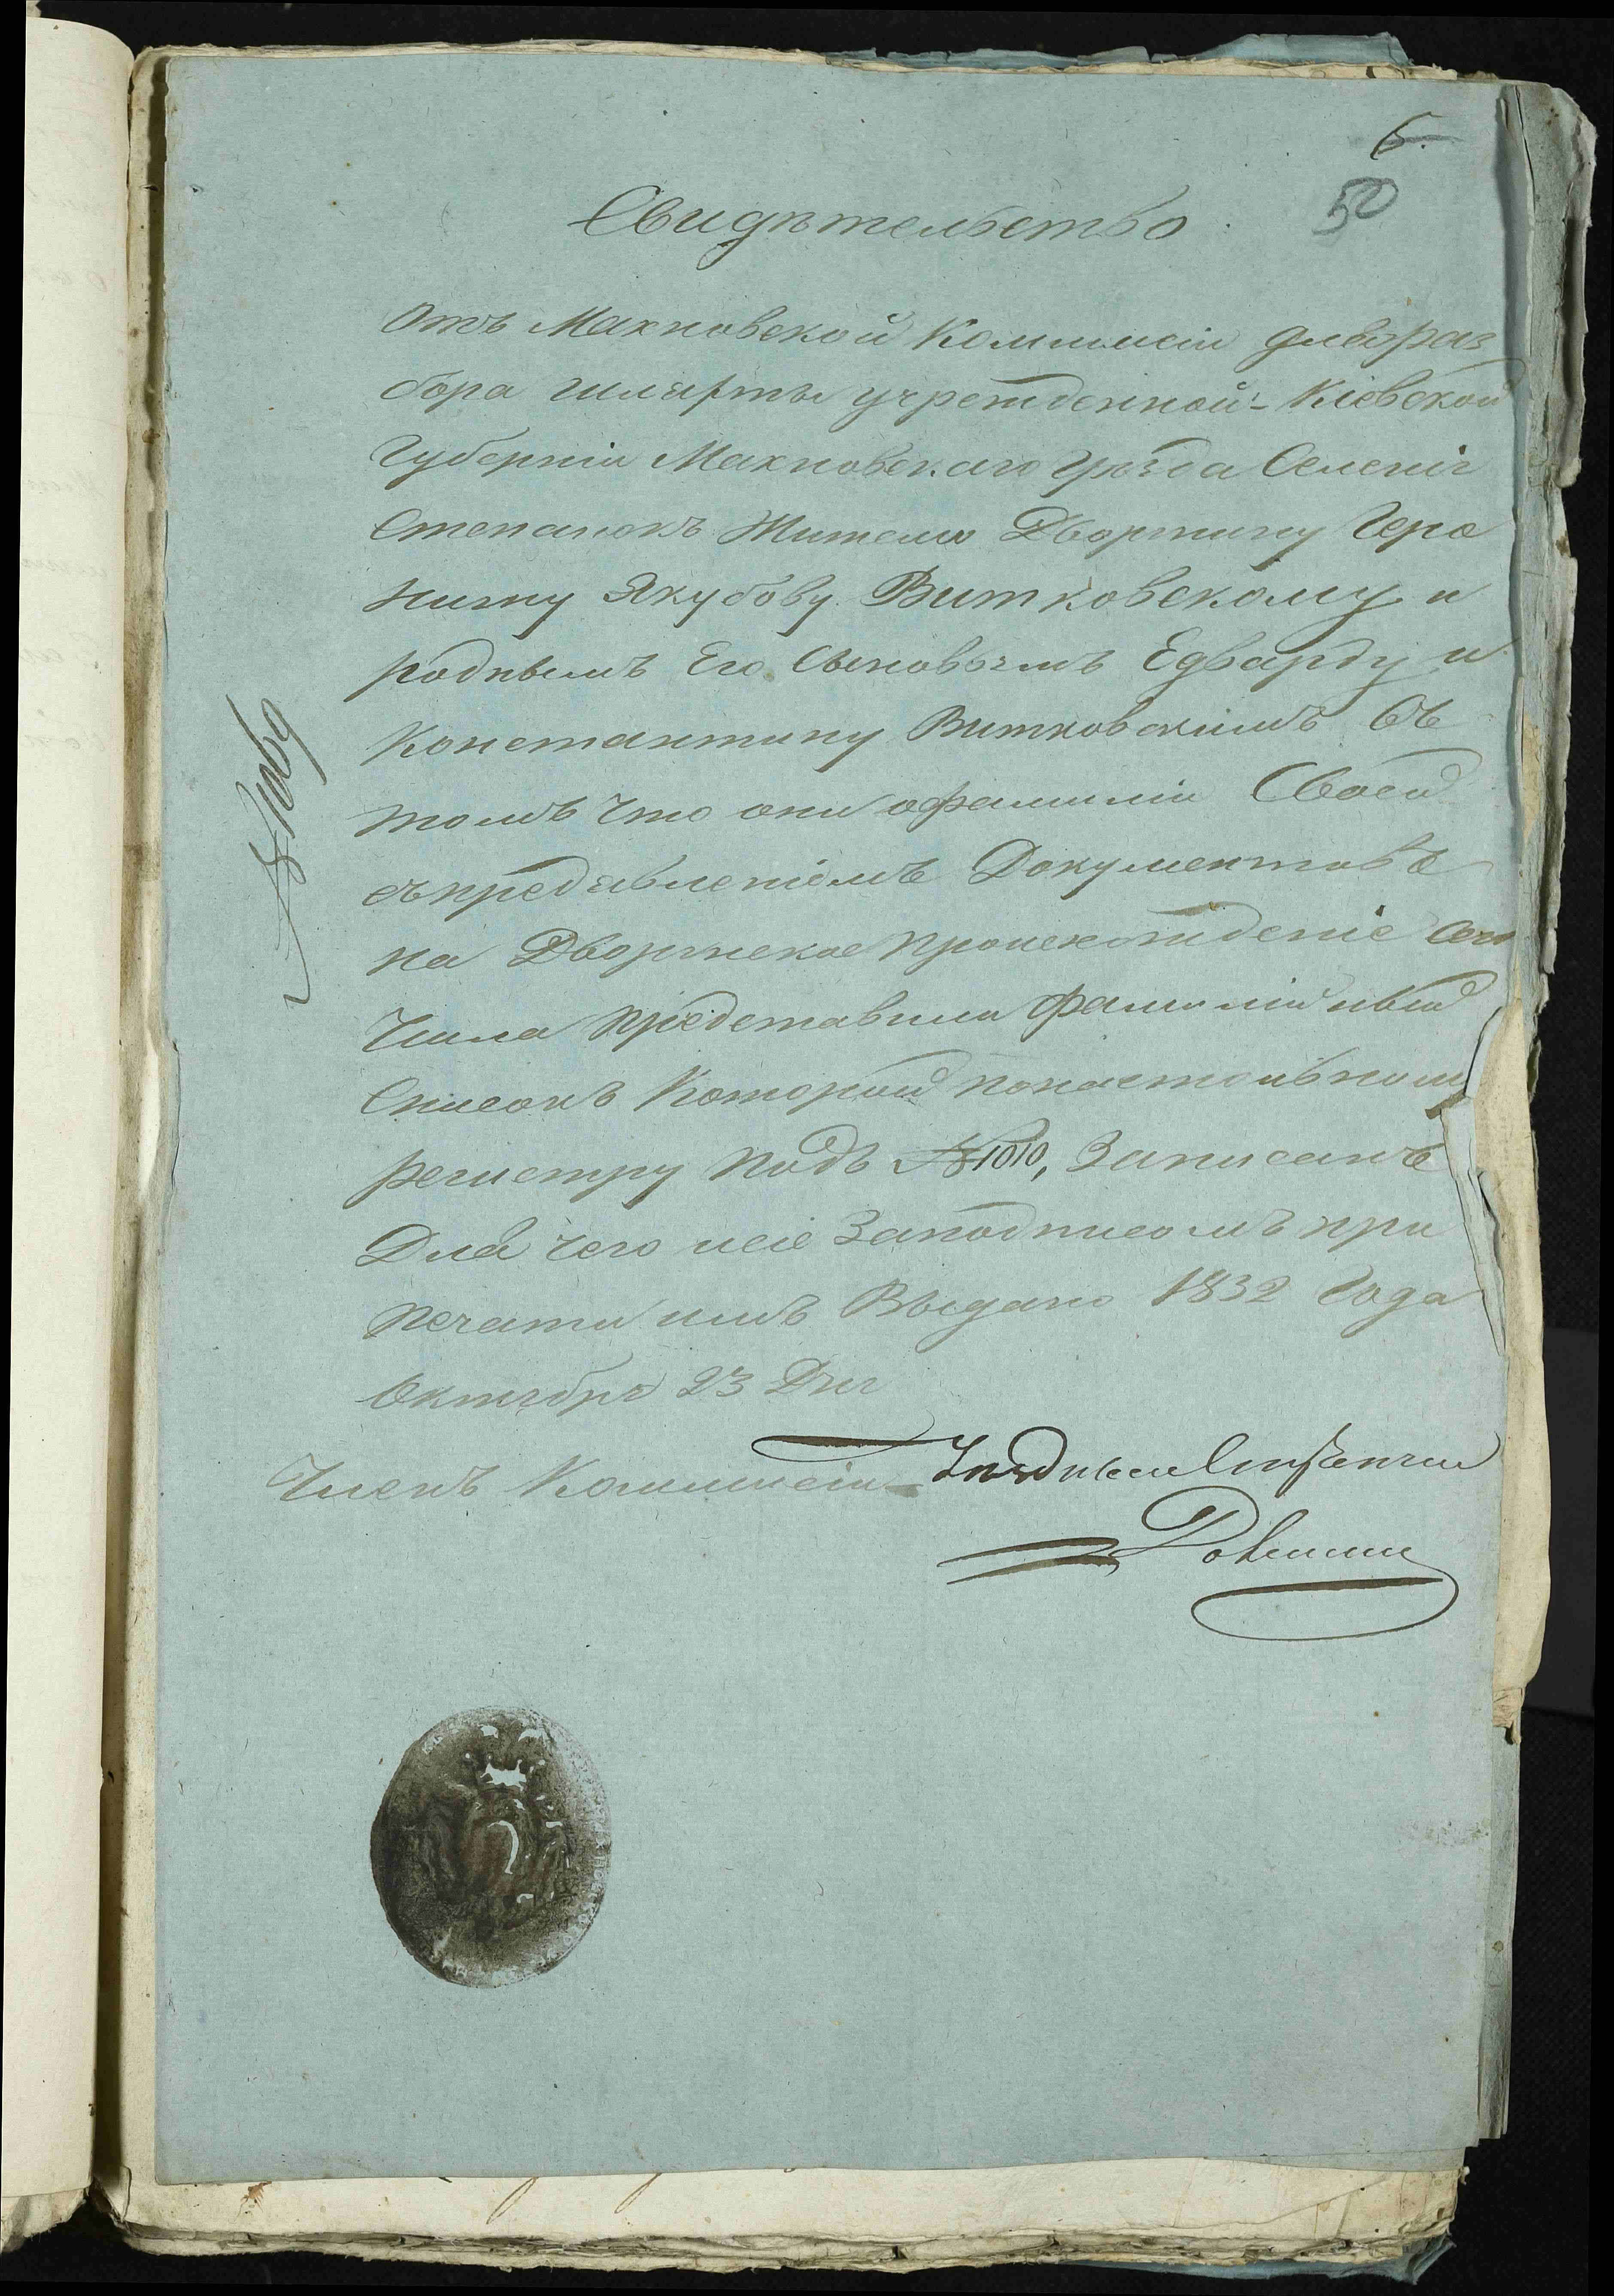 6.
50
Свидѣтельство
Отъ Махновской Коммисіи для раз
бора шляхты учрежденной - Кіевской
Губерніи Махновскаго Уѣзда Селенія
Степанокъ Жителю Дворянину Геро
ниму Якубову Витковскому и
роднымъ Его Сыновьямъ Едварду и
Константину Витковскимъ Въ
томъ что они о фамиліи Своей
съ предъявленіемъ Документовъ
на Дворянское происхожденіе сего
Числа представили Фамилійный
Списокъ Которой по настольному
регистру подъ №1010, Записанъ
Для чего и сіе За подписомъ при
печати имъ Выдано 1832 Года
Октября 23 Дня
Членъ Коммисіи